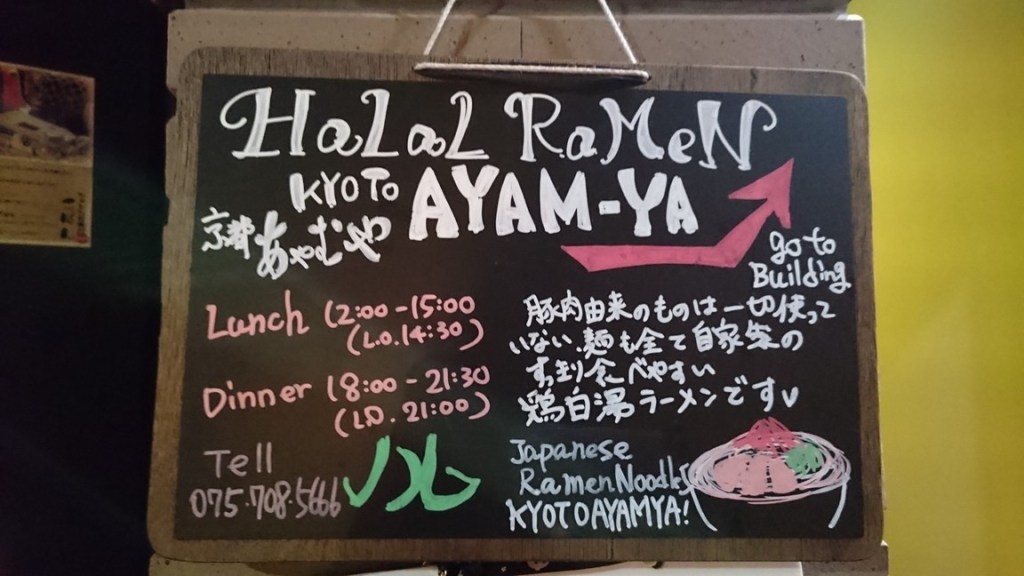 HaLaL RaMeN
KYOTO AYAM-YA
京都 あやむや
go to
Building
Lunch 12:00-15:00
(L.O.14:30)
Dinner 18:00-21:30
(L.O. 21:00)
Tell
075-708-5666
豚肉由来のものは一切使って
いない、麺も全て自家製の
すっきり食べやすい
鶏白湯ラーメンです
Japanese
Ramen Noodles
KYOTO AYAMYA!